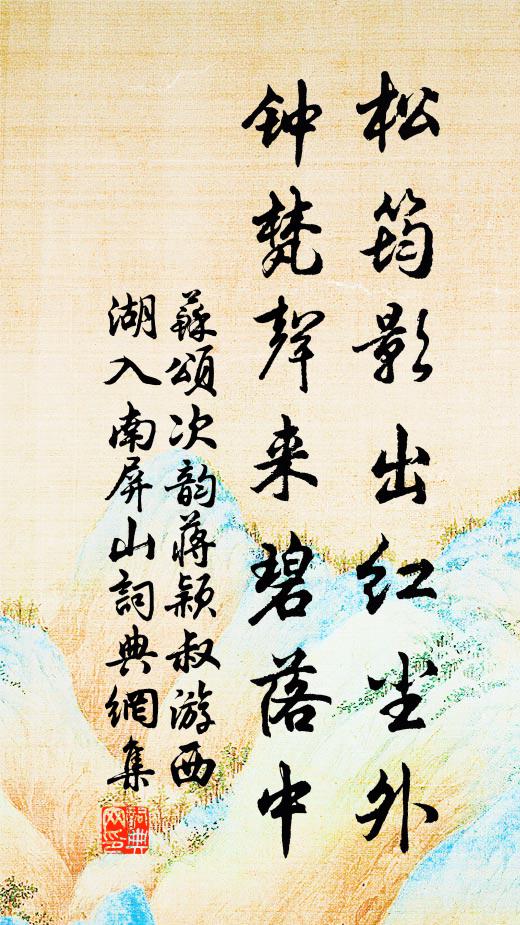 松筠影出红尘外
钟梵聲来碧落中
蘇頌次韵蔣颖叔游西
湖入南屏山詞典網集
詞典网印